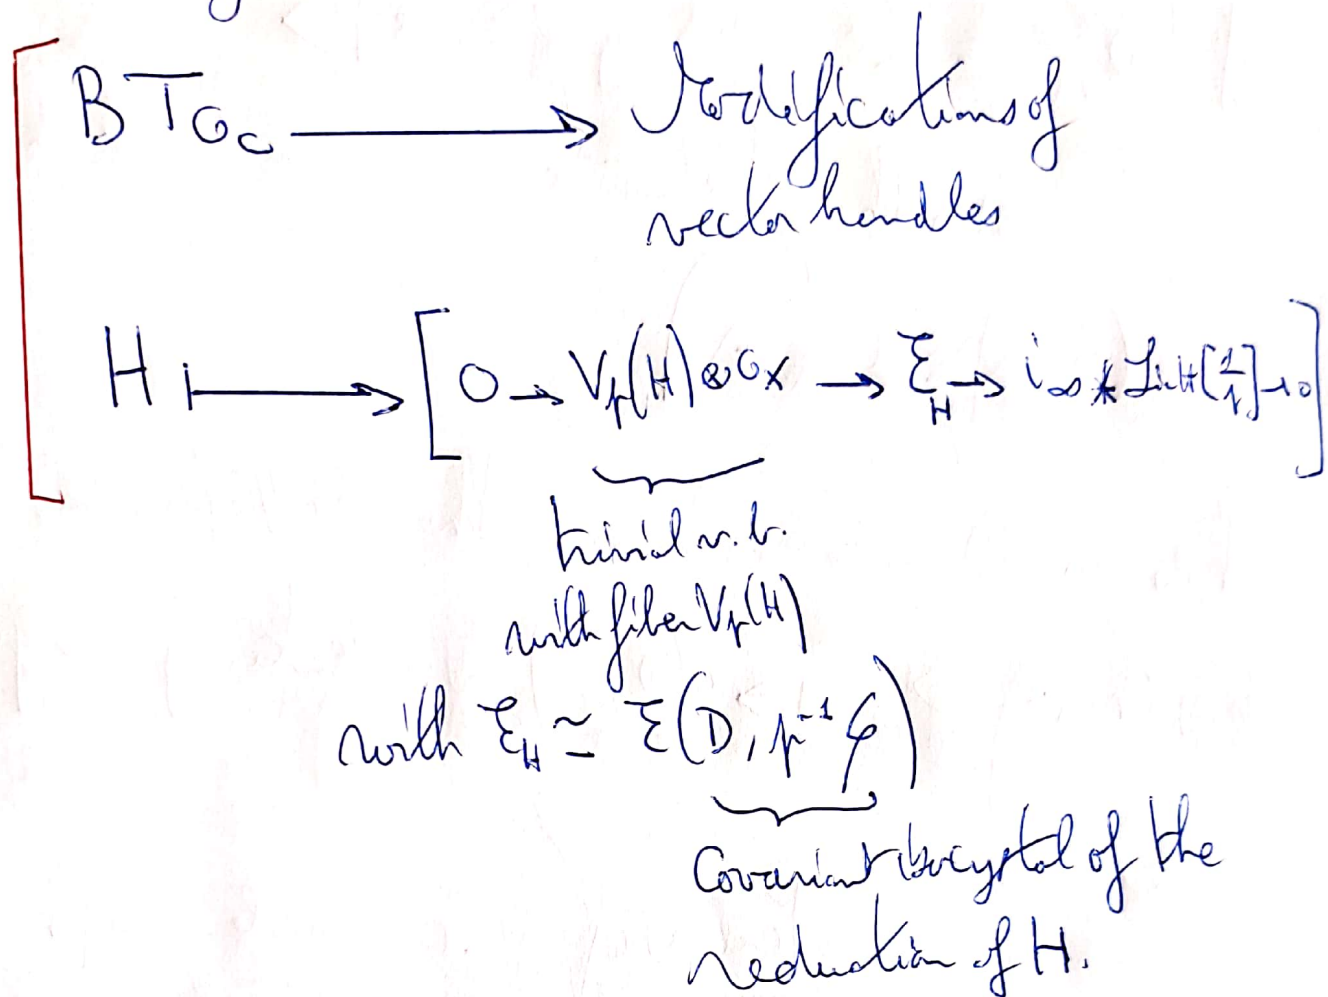 BT_{O_C} ⟶ Modifications of
vector bundles
H ⟼ [0 → V_p(H) ⊗ O_X → ℰ_H → i_{∞*} Lie H[1/p] → 0]
trivial v.b.
with fiber V_p(H)
with ℰ_H ≃ ℰ(D, p^{-1}φ)
Covariant isocrystal of the
reduction of H.